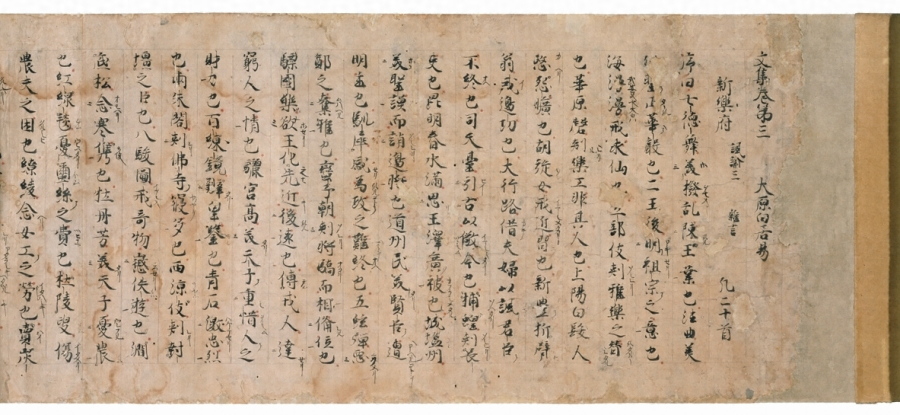 文集卷第三 太原白居易
新樂府 諷諭三 雜言 凡二十首
序曰七德舞美撥亂陳王業也法曲美
列聖正華聲也二王後明祖宗之意也
海漫漫戒求仙也立部伎刺雅樂之替
也華原磬刺樂工非其人也上陽白髮人
愍怨曠也胡旋女戒近習也新豐折臂
翁戒邊功也大行路借夫婦以諷君臣
不終也司天臺引古以儆今也捕蝗刺長
吏也昆明春水滿思王澤廣被也城塩州
美聖謨而誚邊將也道州民美賢臣遭
明主也馴犀感為政之難終也五絃彈惡
鄭之奪雅也蠻子朝刺將驕而相備位也
驃國樂欲王化先近後遠也縛戎人達
窮人之情也驪宮高美天子重惜人之
財力也百煉鏡辯皇鑒也青石激忠烈
也兩朱閣刺佛寺寖多也西涼伎刺封
壃之臣也八駿圖戒奇物懲佚遊也澗
底松念寒儁也牡丹芳美天子憂農
也紅線毯憂蠶絲之費也杜陵叟傷
農夫之困也繚綾念女工之勞也賣炭